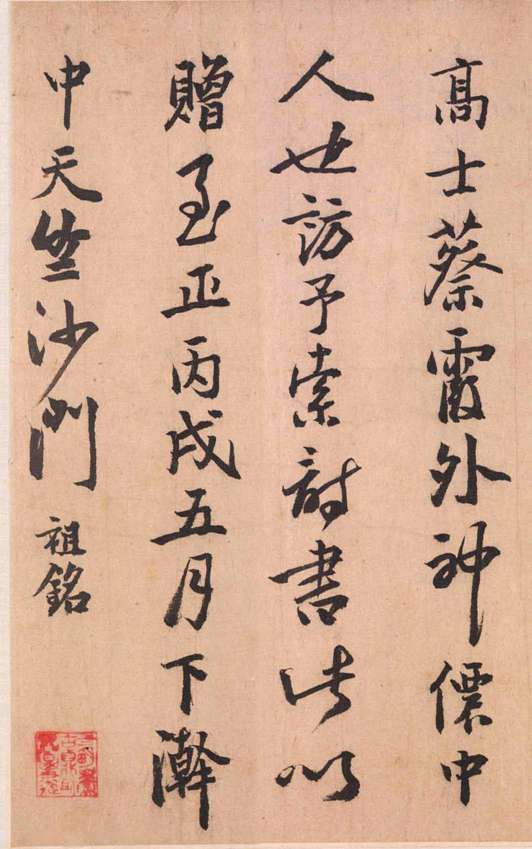 高士蔡霞外神僊中
人也訪予索詩書此以
贈至正丙戌五月下澣
中天竺沙門祖銘